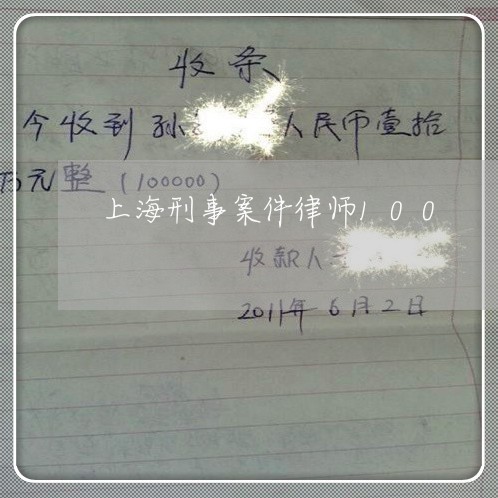 收条
今收到孙 人民币壹拾
万元整(100000)
上海刑事案件律师100
收款人
2011年6月2日